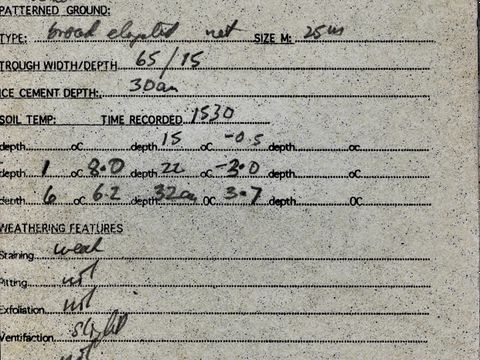 PATTERNED GROUND:
TYPE: broad elongated net SIZE M: 25m
TROUGH WIDTH/DEPTH 65/15
ICE CEMENT DEPTH: 30cm
SOIL TEMP: TIME RECORDED 1530
depth oC depth 15 oC -0.5 depth oC
depth 1 oC 8.0 depth 22 oC -3.0 depth oC
depth 6 oC 6.2 depth 32cm OC 3.7 depth OC
WEATHERING FEATURES
Staining weak
Pitting not
Exfoliation not
Ventifaction slight
not